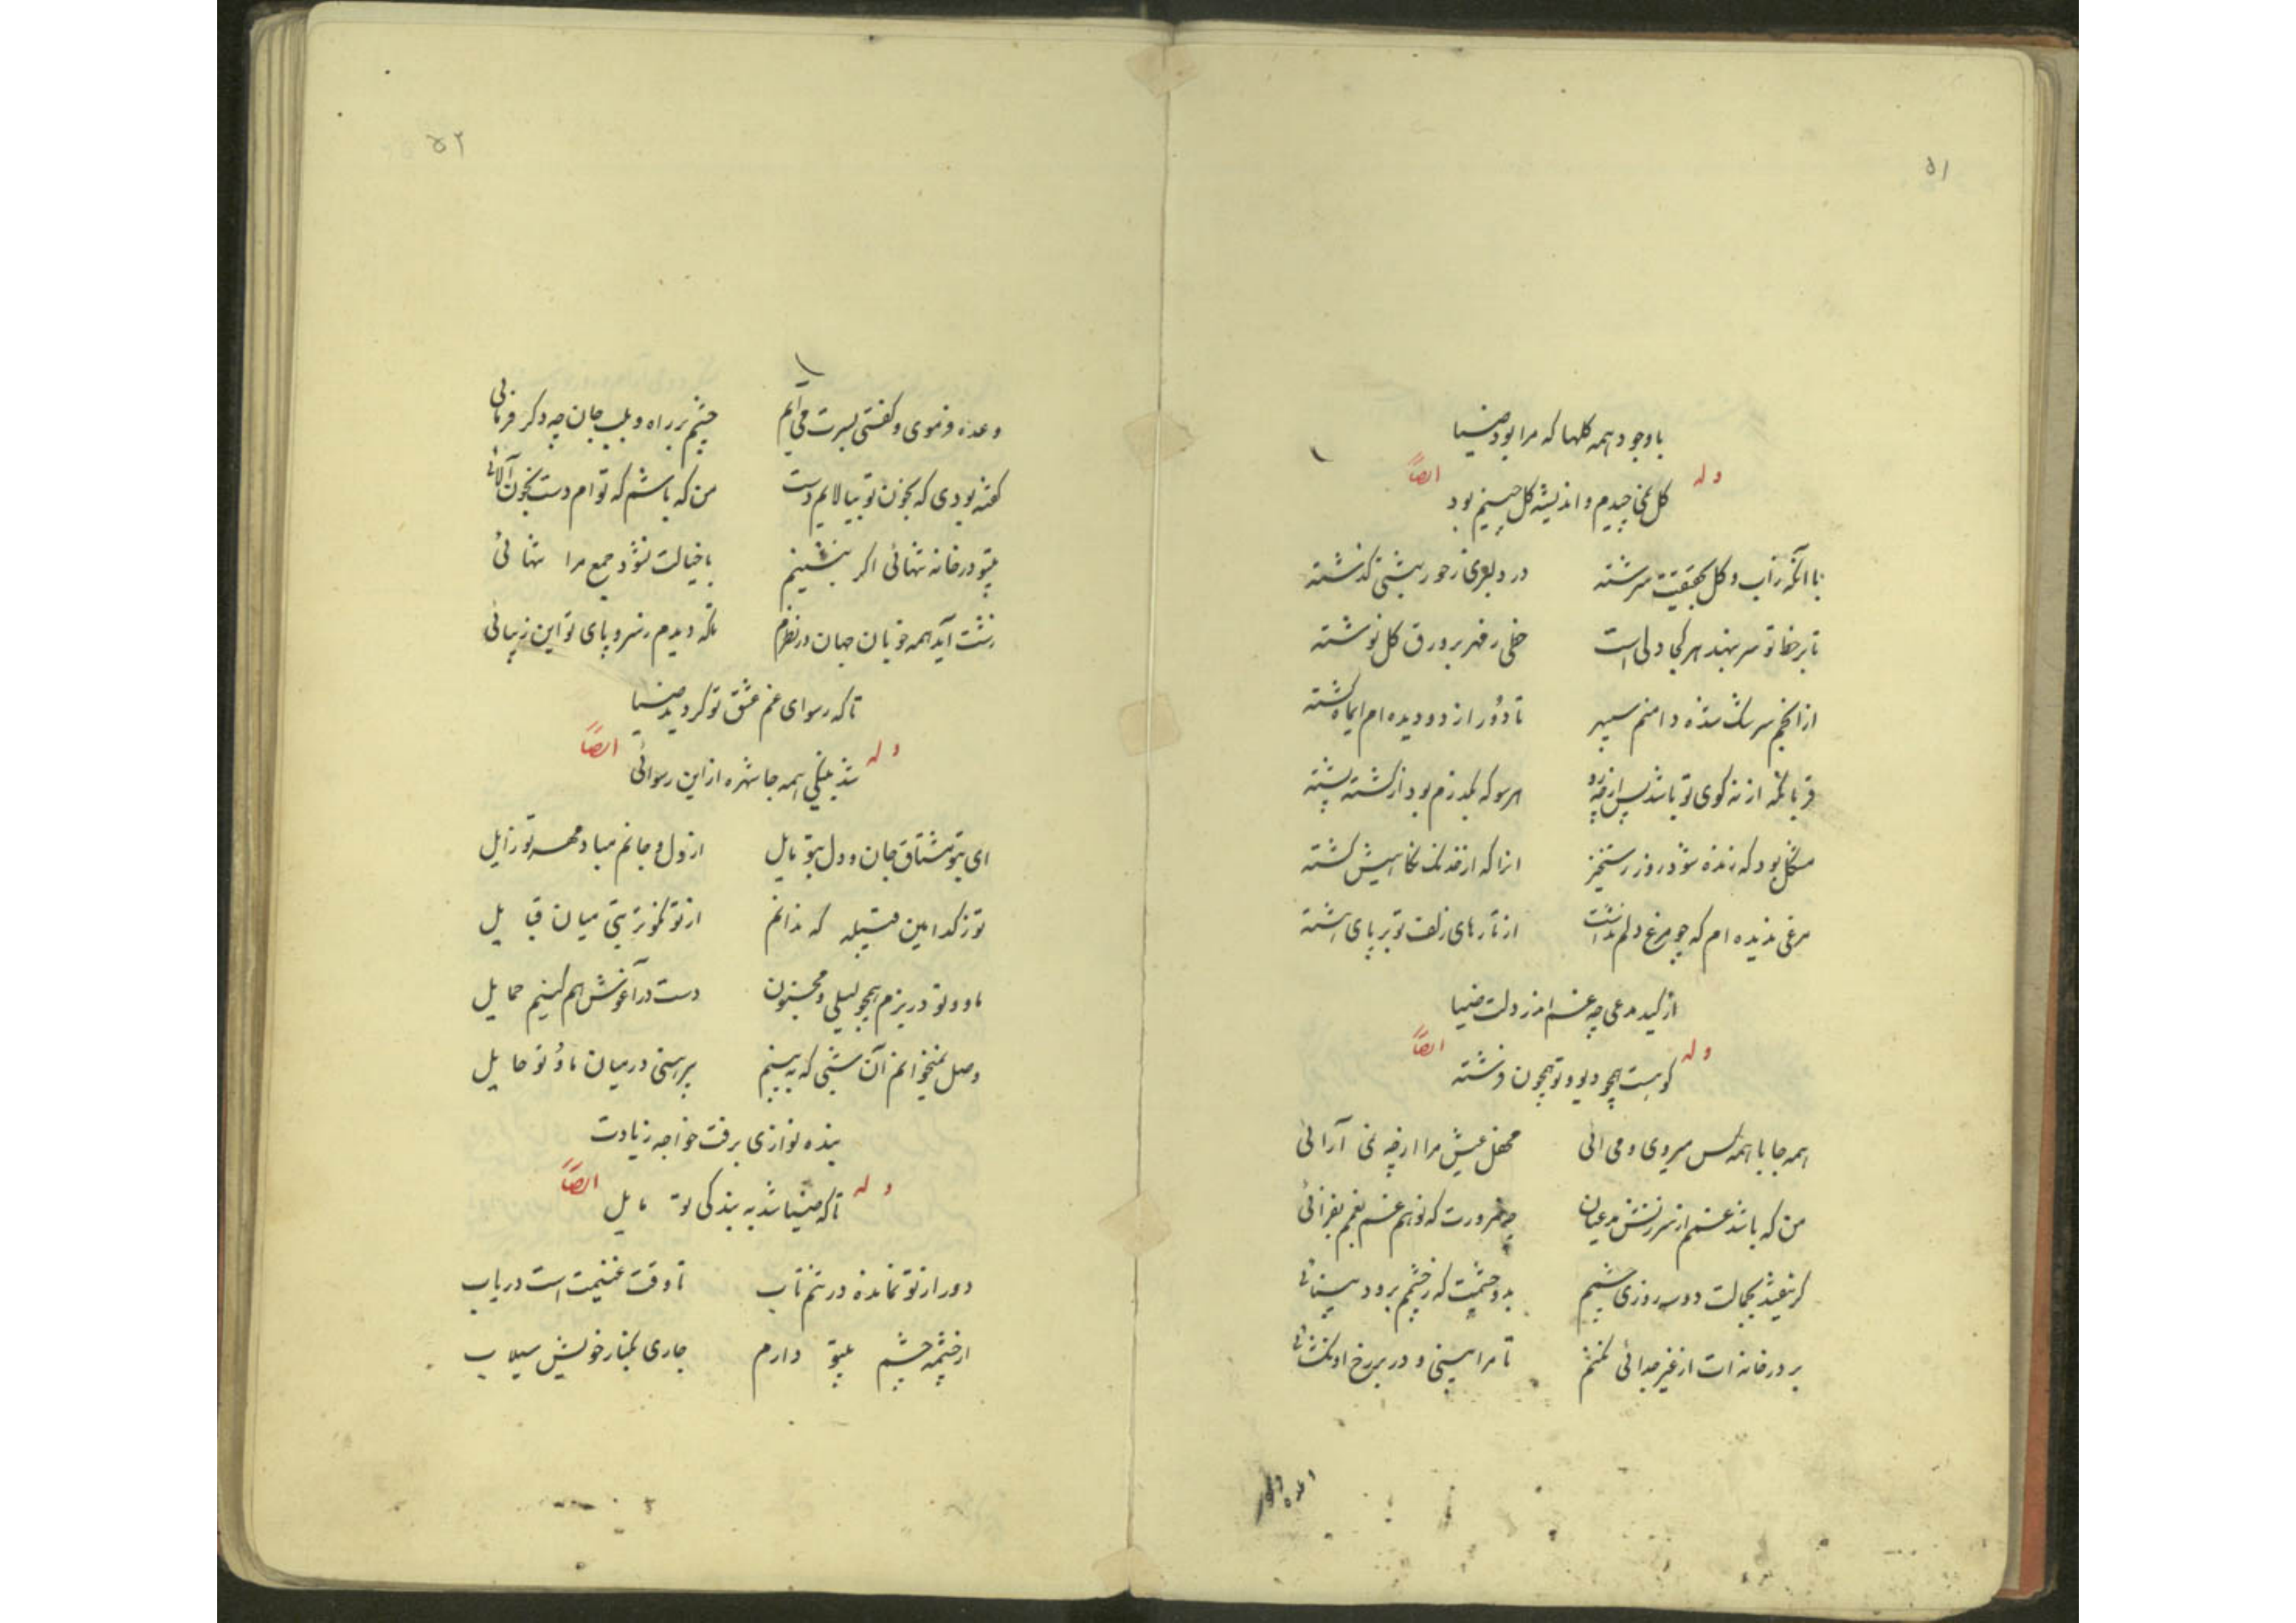 ۵۱
باوجود همه گلها که مرا بود ضیا
وله ایضاً
گل نمی چیدم و اندیشه گل چینم بود
با آنکه زآب و گل بحقیقت سرشته در دلبری ز حور بهشتی گذشته
تا بر خط تو سر بنهد هر کجا دلی است خطی ز مهر بر ورق گل نوشته
از انجم سرشک شده دامنم سپهر تا دور از دو دیده ام ایماه گشته
هر سو که بگذرم بود از کشته پشته
مشکل بود که زنده شود روز رستخیز انرا که از خدنگ نگاهیش کشته
مرغی ندیده ام که چو مرغ دلم نداشت از تارهای زلف تو بر پای رشته
از کید مدعی چه غم اندر دلت ضیا
وله ایضاً
کو هست همچو دیو و تو همچون فرشته
همه جا با همه کس میروی و می آئی محفل عیش مرا از چه نمی آرائی
من که باشد غمم از سرزنش مدعیان چه ضرورت که تو هم غم بغمم بفزائی
گر نیفتد بجمالت دو سه روزی چشمم بدو چشمت که ز چشمم برود بینائی
بر در خانه ات از غیر جدائی نکنم تا مرا بینی و در بر رخ او نگشائی
وعده
۵۲
وعده فرموی و گفتی بسرت می آیم چشم بر راه و بلب جان چه دگر فرمائی
گفته بودی که بخون تو بیالایم دست من که باشم که تو ام دست بخون آلائی
بیتو در خانه تنهائی اگر بنشینم با خیالت نشود جمع مرا تنهائی
زشت آید همه خوبان جهان در نظرم تا که دیدم ز سر و پای تو این زیبائی
تا که رسوای غم عشق تو گردید ضیا
وله ایضاً
شد بنیکی همه جا شهره از این رسوائی
ای بتو مشتاق جان و دل بتو مایل از دل و جانم مباد مهر تو زایل
تو ز کدامین قبیله که ندانم از تو نکوتر بتی میان قبایل
ما و تو در بزم همچو لیلی و مجنون دست در آغوش هم کنیم حمایل
وصل نمیخوانم آن شبی که به بینم پیرهنی در میان ما و تو حایل
بنده نوازی برفت خواجه زیادت
وله ایضاً
تا که ضیا شد به بندگی تو مایل
دور از تو نمانده در تنم تاب تا وقت غنیمت است دریاب
از چشمه چشم بیتو دارم جاری بکنار خویش سیلاب